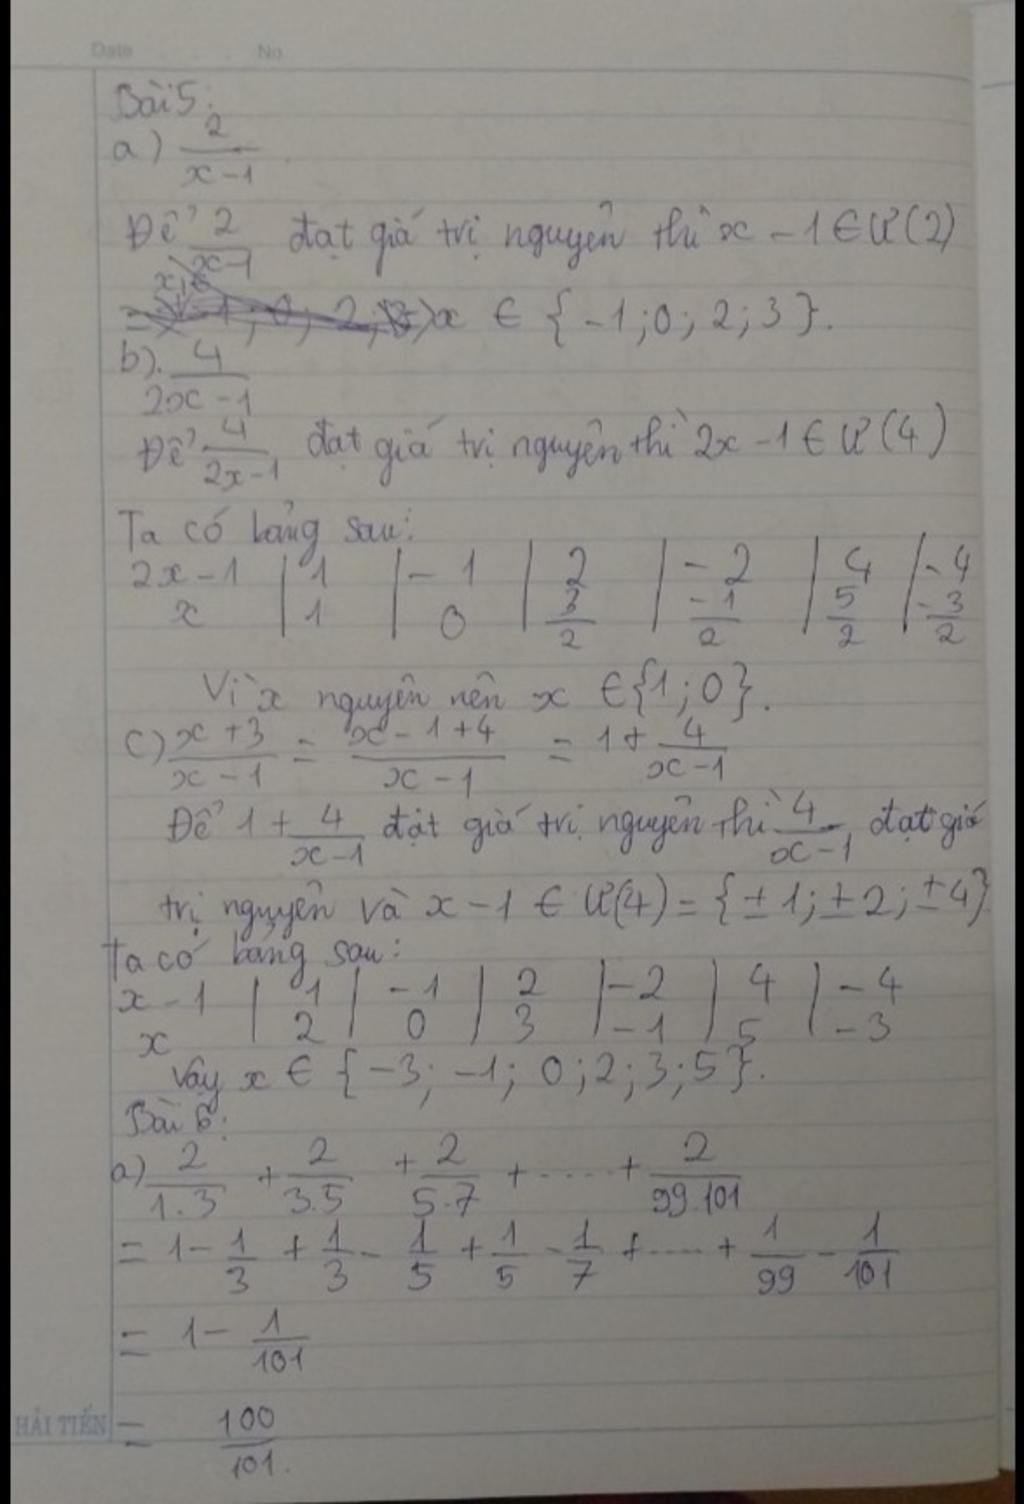 Date No
Bài 5:
a) 2/(x-1)
Để 2/(x-1) đạt giá trị nguyên thì x - 1 ∈ Ư(2)
x ∈ {-1; 0; 2; 3}.
b). 4/(2x-1)
Để 4/(2x-1) đạt giá trị nguyên thì 2x - 1 ∈ Ư(4)
Ta có bảng sau:
2x - 1 | 1 | - 1 | 2 | - 2 | 4 | - 4
x | 1 | 0 | 3/2 | -1/2 | 5/2 | -3/2
Vì x nguyên nên x ∈ {1; 0}.
c) (x+3)/(x-1) = (x-1+4)/(x-1) = 1 + 4/(x-1)
Để 1 + 4/(x-1) đạt giá trị nguyên thì 4/(x-1) đạt giá
trị nguyên và x - 1 ∈ Ư(4) = {±1; ±2; ±4}
Ta có bảng sau:
x - 1 | 1 | - 1 | 2 | - 2 | 4 | - 4
x | 2 | 0 | 3 | - 1 | 5 | - 3
Vậy x ∈ {-3; -1; 0; 2; 3; 5}.
Bài 6:
a) 2/(1.3) + 2/(3.5) + 2/(5.7) + ..... + 2/(99.101)
= 1 - 1/3 + 1/3 - 1/5 + 1/5 - 1/7 + ..... + 1/99 - 1/101
= 1 - 1/101
= 100/101.
HẢI TIẾN